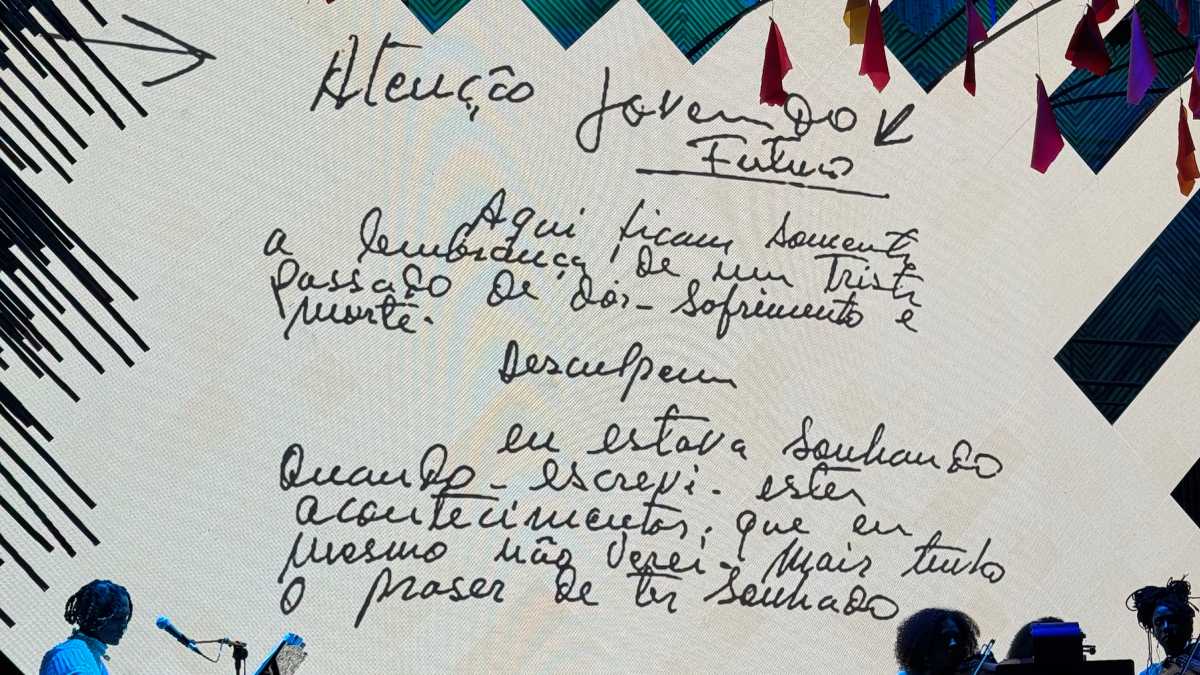 Atenção Jovem do
Futuro
Aqui ficam somente
a lembrança de um triste
passado de dor - sofrimento e
morte.
Desculpem
eu estava sonhando
quando - escrevi - estes
acontecimentos, que eu
mesmo não verei - mais tenho
o praser de ter sonhado